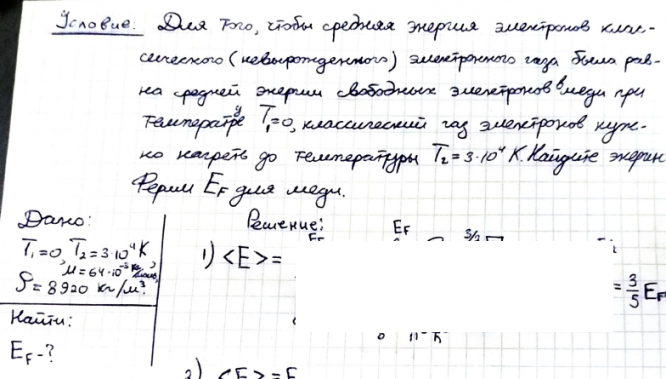 Условие: Для того, чтобы средняя энергия электронов клас-
сического (невырожденного) электронного газа была рав-
на средней энергии свободных электронов в меди при
температуре T₁=0, классический газ электронов нуж-
но нагреть до температуры T₂=3·10⁴ K. Найдите энергию
Ферми E_F для меди.
Дано:
T₁=0, T₂=3·10⁴ K,
μ=64·10⁻³ кг/моль,
ρ=8920 кг/м³
Найти:
E_F-?
Решение:
E_F
5/2
1) <E>=
= 3/5 E_F
0
2) <E>=E